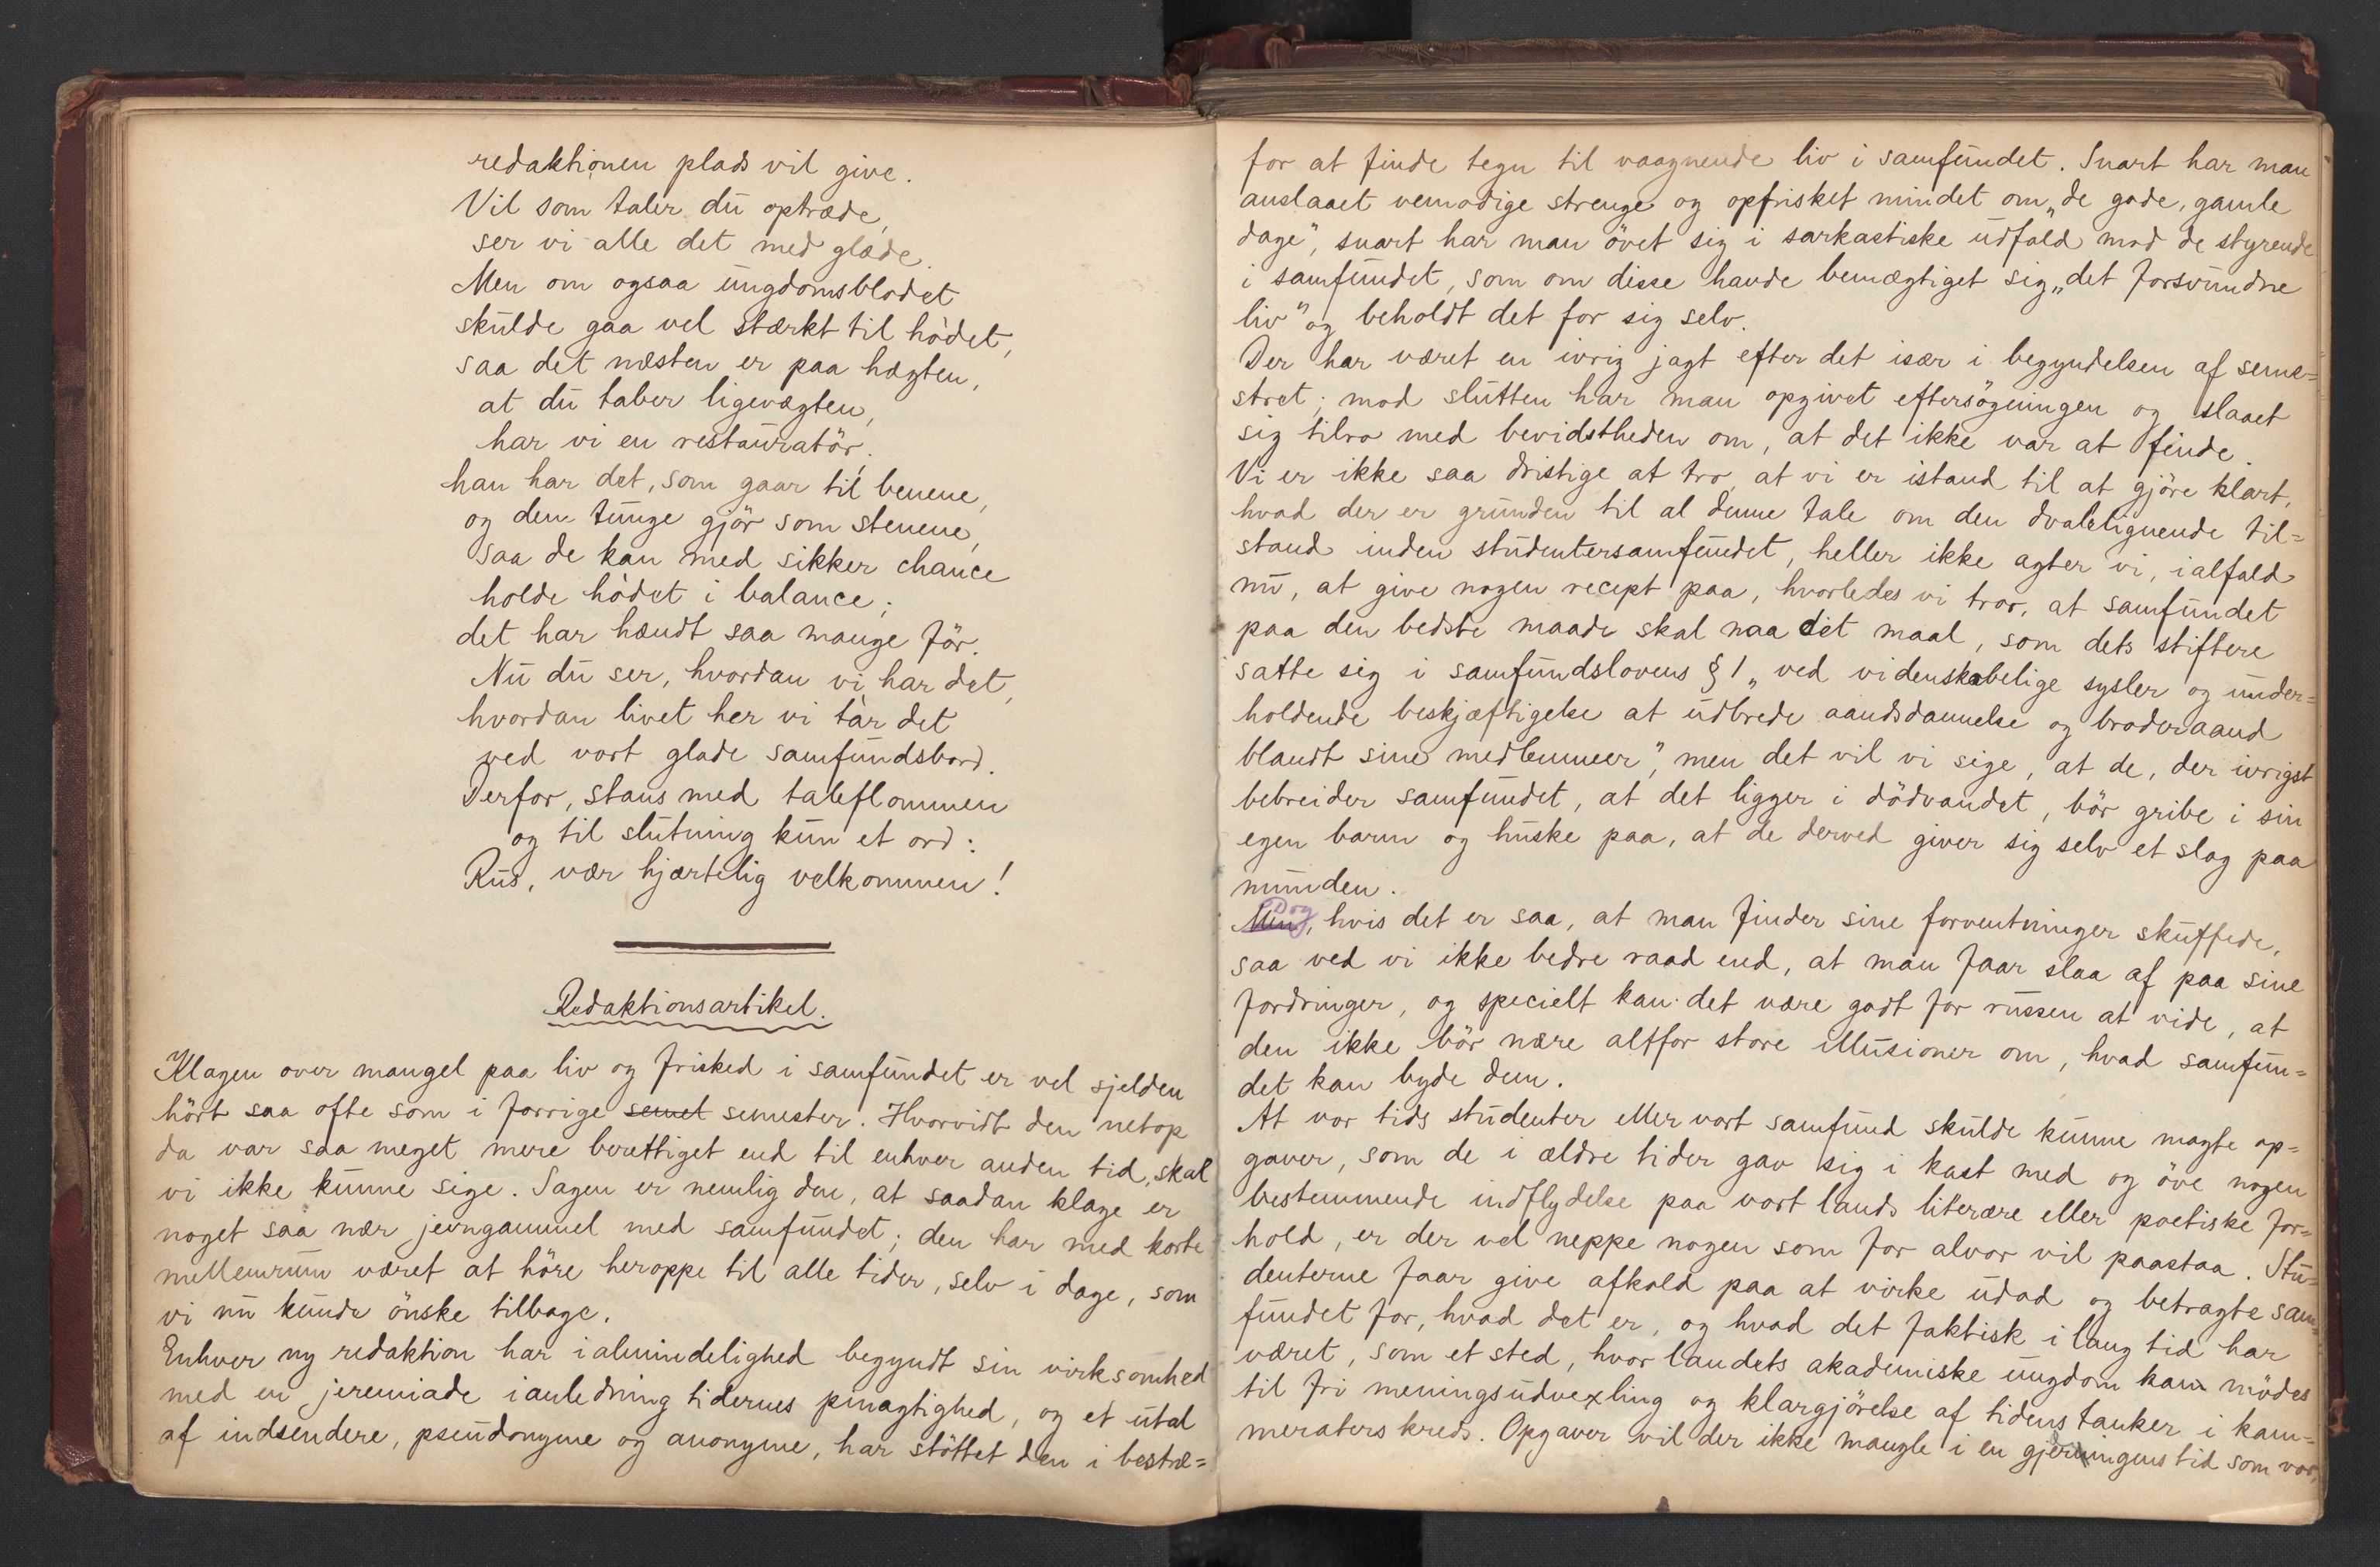 redaktionen plads vil give.
Vil som taler du optræde,
ser vi alle det med glæde.
Men om ogsaa ungdomsblodet
skulde gaa vel stærkt til hodet,
saa det næsten er paa hægten,
at du taber ligevægten,
har vi en restauratör.
han har det, som gaar til benene,
og dem tunge gjör som stenene,
saa de kan med sikker chance
holde hodet i balance;
det har hændt saa mange för.
Nu du ser, hvordan vi har det,
hvordan livet her vi tar det
ved vort glade samfundsbord.
Derfor, stans med taleflommen
og til slutning kun et ord:
Rus, vær hjærtelig velkommen!
Redaktionsartikel.
Klagen over mangel paa liv og friskhed i samfundet er vel sjelden
hört saa ofte som i forrige semet semester. Hvorvidt den netop
da var saa meget mere berettiget end til enhver anden tid, skal
vi ikke kunne sige. Sagen er nemlig den, at saadan klage er
noget saa nær jevngammel med samfundet; den har med korte
mellemrum været at höre heroppe til alle tider, selv i dage, som
vi nu kunde önske tilbage.
Enhver ny redaktion har i almindelighed begyndt sin virksomhed
med en jeremiade i anledning tidernes pinagtighed, og et utal
af indsendere, pseudonyme og anonyme, har stöttet den i bestræ=
for at finde tegn til vaagnende liv i samfundet. Snart har man
anslaaet vemodige strenge og opfrisket mindet om „de gode, gamle
dage", snart har man övet sig i sarkastiske udfald mod de styrende
i samfundet, som om disse havde bemægtiget sig „det forsvundne
liv" og beholdt det for sig selv.
Der har været en ivrig jagt efter det især i begyndelsen af seme=
stret; mod slutten har man opgivet eftersögningen og slaaet
sig tilro med bevidstheden om, at det ikke var at finde.
Vi er ikke saa dristige at tro, at vi er istand til at gjöre klart,
hvad der er grunden til al denne tale om den dvalelignende til=
stand inden studentersamfundet, heller ikke agter vi, ialfald
nu, at give nogen recept paa, hvorledes vi tror, at samfundet
paa den bedste maade skal naa det maal, som dets stiftere
satte sig i samfundslovens § 1 „ved videnskabelige sysler og under=
holdende beskjæftigelse at udbrede aandsdannelse og broderaand
blandt sine medlemmer", men det vil vi sige, at de, der ivrigst
bebreider samfundet, at det ligger i dödvandet, bör gribe i sin
egen barm og huske paa, at de derved giver sig selv et slag paa
munden.
Men Dog, hvis det er saa, at man finder sine forventninger skuffede,
saa ved vi ikke bedre raad end, at man faar slaa af paa sine
fordringer, og specielt kan det være godt for russen at vide, at
den ikke bör nære altfor store illusioner om, hvad samfun=
det kan byde dem.
At vor tids studenter eller vort samfund skulde kunne magte op=
gaver, som de i ældre tider gav sig i kast med og öve nogen
bestemmende indflydelse paa vort lands literære eller poetiske for=
hold, er der vel neppe nogen som for alvor vil paastaa. Stu=
denterne faar give afkald paa at virke udad og betragte sam=
fundet for, hvad det er, og hvad det faktisk i lang tid har
været, som et sted, hvor landets akademiske ungdom kan mödes
til fri meningsudvexling og klargjörelse af tidens tanker i kam=
meraters kreds. Opgaver vil der ikke mangle i en gjerningens tid som vor,